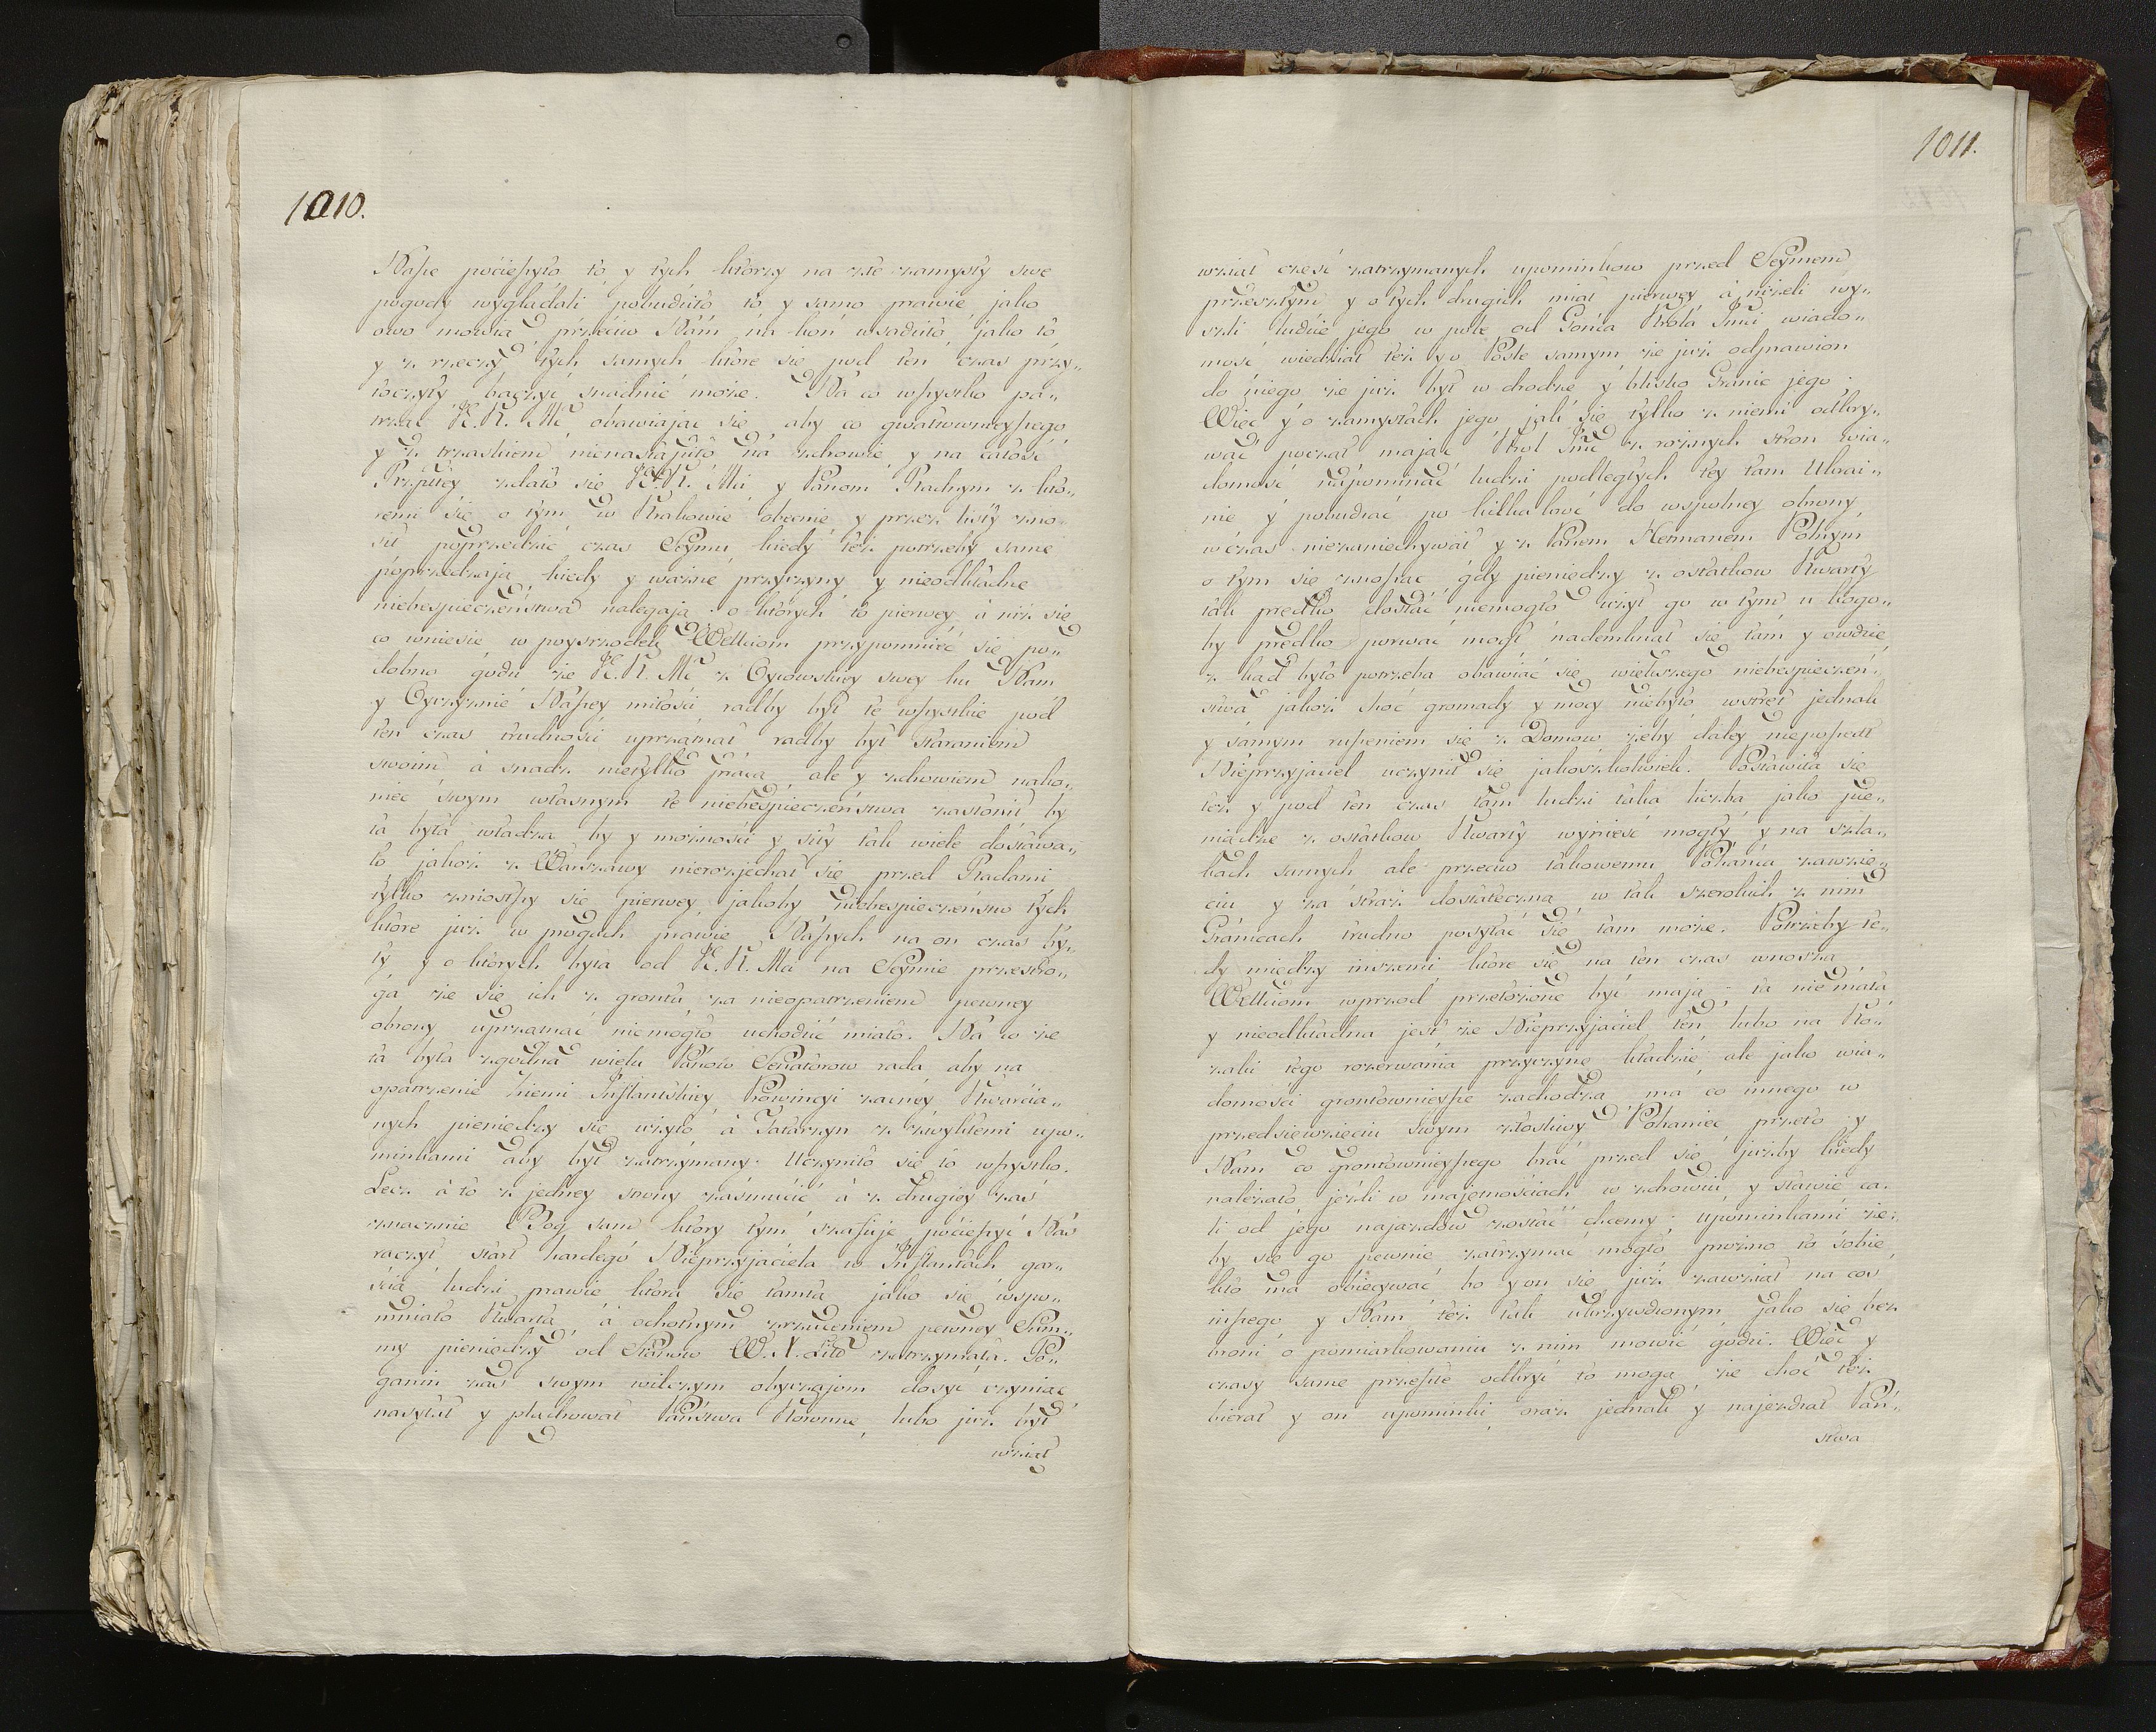 1010.
Wasze pocieszyło to y tych ktorzy na złe zamysły swe
pogody wyglądali pobudziło to y samo prawie jako
owo mowią przeciw Wam na koń wsadziło, jako to
y z rzeczy tych samych ktore się pod ten czas przy„
toczyły baczyć snadnie może. Na co wszystko pa„
trząc J.K. Mć obawiając się aby co gwałtownieyszego
y z trzaskiem nienastąpiło na zdrowie y na całość
Rzpltey zdało się J.K. Mci y Panom Radnym z któ„
remi się o tym w Krakowie obecnie y przez listy zno
sił poprzedzić czas Seymu kiedy też potrzeby same
poprzedzają, kiedy y ważne przyczyny y nieodkładne
niebespieczeństwa nalegają: o ktorych to pierwey a niż się
co wniesie w poysrzodek WMciom przypomnieć się po„
dobno godzi że J.K. Mć z Oycowskiey swey ku Wam
y Oyczyznie Waszey miłości radby był te wszystkie pod
ten czas trudności uprzątnął radby był staraniem
swoim a snadz nietylko pracą ale y zdrowiem nako„
niec swym własnym te niebespieczeństwa zasłonił by
ta była władza by y możności y siły tak wiele dostawa„
ło jakoż z Warszawy nierozjechał się przed Radami
tylko zniosszy się pierwey jakoby niebespieczeństw tych
ktore już w progach prawie Waszych na on czas by„
ły y o ktorych była od J.K. Mci na Seymie przestro„
ga że się ich z gruntu za nieopatrzeniem pewney
obrony uprzątnąć niemogło uchodzić miało. Na to że
ta była zgodna wielu Panow Senatorow rada aby na
opatrzenie Ziemi Inflantskiey Prowincyi zacney Kwarcia„
nych pieniędzy się użyło a Tatarzyn z zwykłemi upo„
minkami aby był zatrzymany. Uczyniło się to wszystko.
Lecz a to z jedney strony zasmucić a z drugiey zaś
znacznie Bog sam ktory tym szafuje pocieszyć Was
raczył, starł hardego Nieprzyjaciela w Inflantach gar„
ścią ludzi prawie ktora się tamta jako się wspo„
mniało Kwartą, a ochotnym zrzuceniem pewney Sum„
my pieniędzy od Stanow W.X. Litt zatrzymała. Po„
ganin zaś swym wilczym obyczajom dosyć czyniąc
nasyłał y pluchował Państwa Koronne, lubo już był
wziął
1011.
wziął część zatrzymanych upominkow przed Seymem
przeszłym y o tych drugich miał pierwey a niżeli wy„
szli ludzie jego w pole od Gońca Krola Jmci wiado„
mość wiedział też y o Pośle samym że już odprawion
do niego że już był w drodze y blisko Granic jego;
Więc y o zamysłach jego jak się tylko z niemi odkry„
wać począł mając Krol Jmć z rożnych stron wia„
domość napominać ludzi podległych tey tam Ukrai„
nie y pobudzać po kilka kroć do wspolney obrony,
wczas niezaniechywał y z Panem Hetmanem Polnym
o tym się znosząc gdy pieniędzy z ostatkow Kwarty
tak prędko dostać niemogło użył go w tym u kogo„
by prędko porwać mogł nademknął się tam y owdzie
z kąd było potrzeba obawiać się większego niebespieczeń„
stwa jakoż choć gromady y mocy niebyło wstręt jednak
y samym ruszeniem się z Domow żeby daley nieposzedł
Nieprzyjaciel uczynił się jakożkolwiek. Postawiła się
też y pod ten czas tam ludzi taka liczba jako pie„
niądze z ostatkow Kwarty wynieść mogły y na szla„
kach samych ale przeciw takowemu Pohańca zawzię„
ciu y za straż dostateczną w tak szerokich z nim
Granicach trudno poczytać się tam może. Potrzeby te„
dy między inszemi ktore się na ten czas wnoszą
WMciom wprzod przełożone być mają: ta nie mała
y nieodkładna jest że Nieprzyjaciel ten, lubo na Ko„
zaki tego rozerwania przyczynę kładzie ale jako wia„
domości gruntownieysze zachodzą ma co innego w
przedsięwzięciu swym złośliwy Pohaniec przeto y
Wam co gruntownieyszego brać przed się jużby kiedy
należało jeżli w majętnościach w zdrowiu y sławie ca„
li od jego najazdow zostać chcemy; upominkami że„
by się go pewnie zatrzymać mogło prożno to sobie
kto ma obiecywać bo y on się już zawziął na coś
inszego y Wam też tak ukrzywdzonym jako się bez
broni o pomiarkowaniu z nim mowić godzi. Więc y
czasy same przeszłe odkryć to mogą że choć też
bierał y on upominki oraz jednak y najeżdżał Pań„
stwa